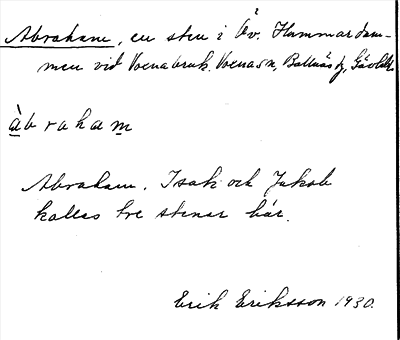 Abraham, en sten i Öv. Hammardam-
men vid Voxnabruk. Voxna sn, Bollnäs fg, Gävleb.
àbraham
Abraham, Isak och Jakob
kallas tre stenar här.
Erik Eriksson 1930.